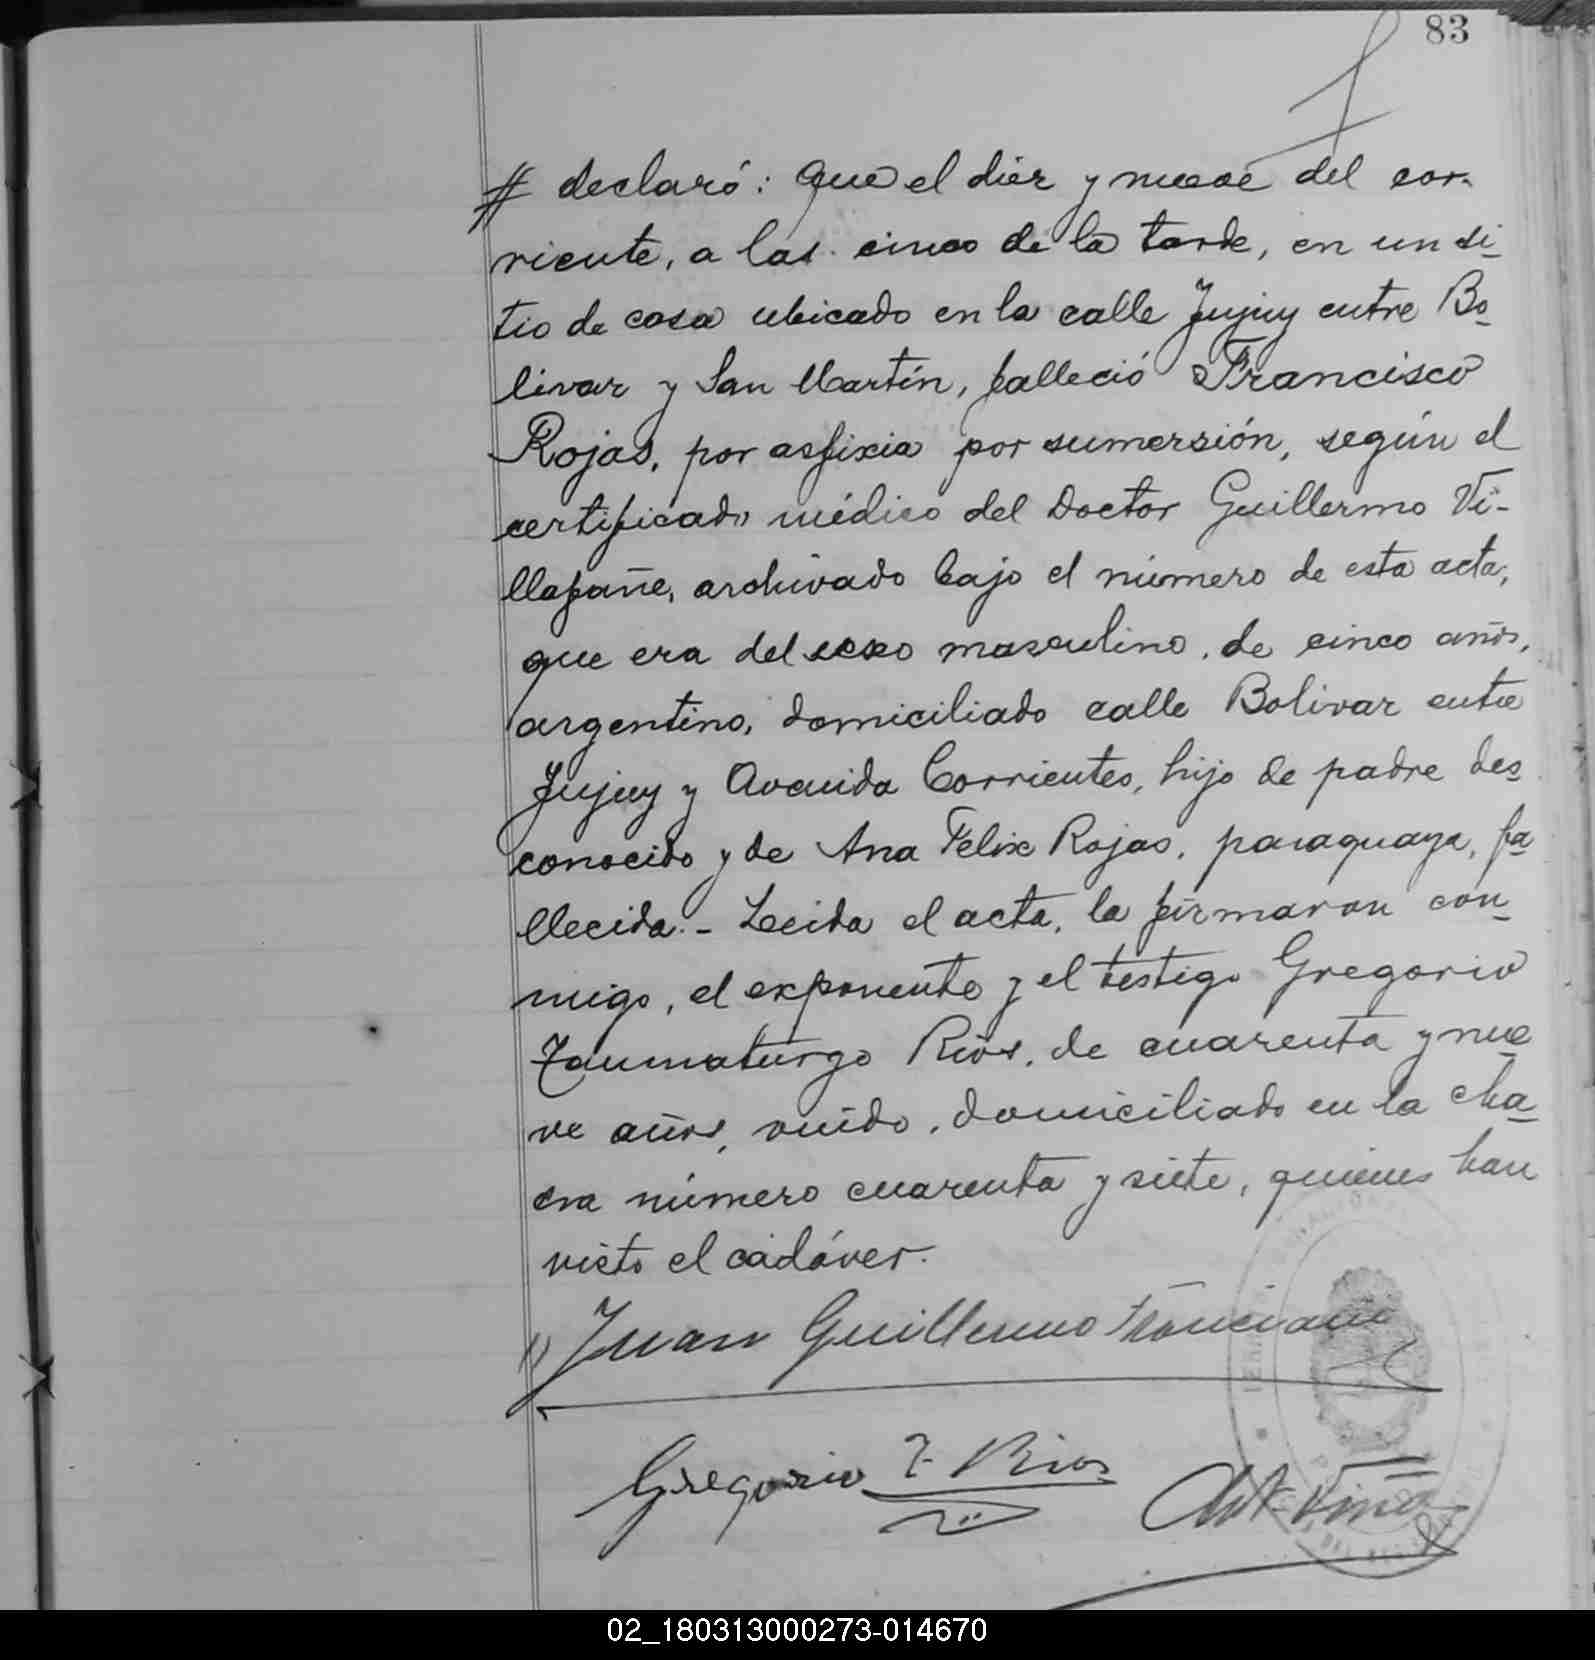 83
# declaró: Que el diez y nueve del cor-
riente, a las cinco de la tarde, en un si-
tio de casa ubicado en la calle Jujuy entre Bo-
livar y San Martín, falleció Francisco
Rojas, por asfixia por sumersión, según el
certificado médico del Doctor Guillermo Vi-
llafañe, archivado bajo el número de esta acta,
que era del sexo masculino, de cinco años,
argentino, domiciliado calle Bolivar entre
Jujuy y Avenida Corrientes, hijo de padre des-
conocido y de Ana Felix Rojas, paraguaya, fa-
llecida.- Leida el acta, la firmaron con-
migo, el exponente y el testigo Gregorio
Taumaturgo Rios, de cuarenta y nue-
ve años, viudo, domiciliado en la cha-
cra número cuarenta y siete, quienes han
visto el cadáver.
Juan Guillermo
Gregorio T. Rios
02_180313000273-014670